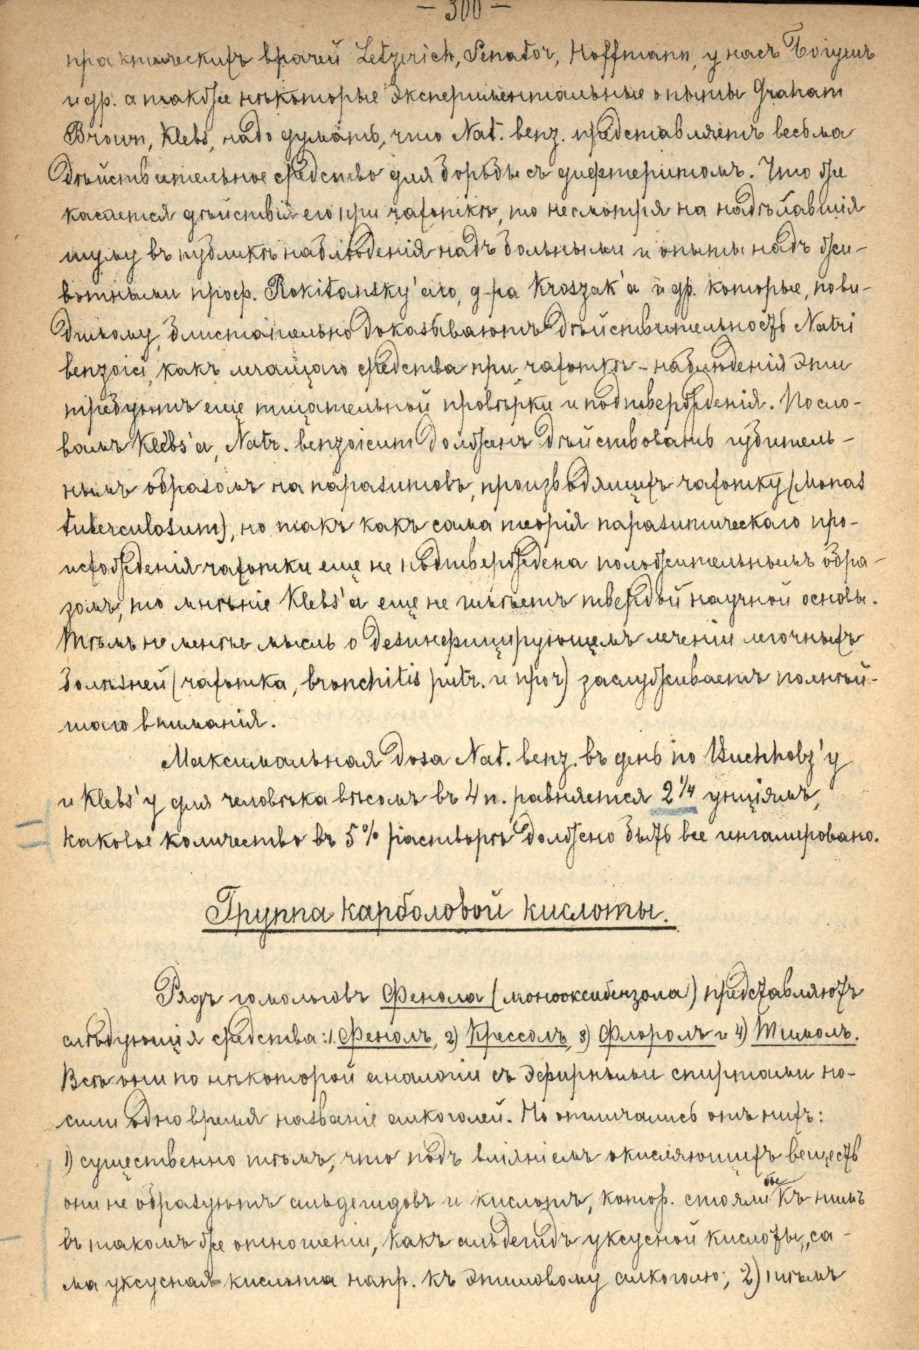 — 300 —
практическихъ врачей Letzerich, Senator, Hoffmann, у насъ
и др. а также нѣкоторые экспериментальные опыты Graham
Brown, Klebs, надо думать, что Nat. benz. представляетъ весьма
дѣйствительное средство для борьбы съ дифтеритомъ. Что же
касается дѣйствія его при чахоткѣ, то несмотря на надѣлавшія
шуму въ публикѣ наблюденія надъ больными и опыты надъ жи-
вотными проф. Rokitansky'аго, д-ра Kroszak'а и др. которые, пови-
димому, блистательно доказываютъ дѣйствительность Natri
benzoici, какъ лечащаго средства при чахоткѣ – наблюденія эти
требуютъ еще тщательной провѣрки и подтвержденія. По сло-
вамъ Klebs'а, Natr. benzoicum долженъ дѣйствовать губитель-
нымъ образомъ на паразитовъ, производящихъ чахотку (Monas
tuberculosum), но такъ какъ сама теорія паразитическаго про-
исхожденія чахотки еще не подтверждена положительнымъ обра-
зомъ, то мнѣніе Klebs'а еще не имѣетъ твердой научной основы.
Тѣмъ не менѣе мысль о дезинфицирующемъ леченіи легочныхъ
болѣзней (чахотка, bronchitis putr. и проч) заслуживаетъ полнѣй-
шаго вниманія.
Максимальная доза Nat. benz. въ день по Buchholz'у
и Klebs'у для человѣка вѣсомъ въ 4 п. равняется 2 1/4 унціямъ,
каковое количество въ 5% растворѣ должно быть все ингалировано.
Группа карболовой кислоты.
Рядъ гомологовъ Фенола (монооксибензола) представляютъ
слѣдующія средства: 1. Фенолъ, 2) Крессолъ, 3) Флоролъ и 4) Тимолъ.
Всѣ они по нѣкоторой аналогіи съ эфирными спиртами но-
сили одно время названіе алкоголей. Но отличались отъ нихъ:
1) существенно тѣмъ, что подъ вліяніемъ окисляющихъ веществъ
они не образуютъ альдегидовъ и кислотъ, котор. стояли бы къ нимъ
въ такомъ же отношеніи, какъ альдегидъ уксусной кислоты, са-
ма уксусная кислота напр. къ этиловому алкоголю; 2) тѣмъ